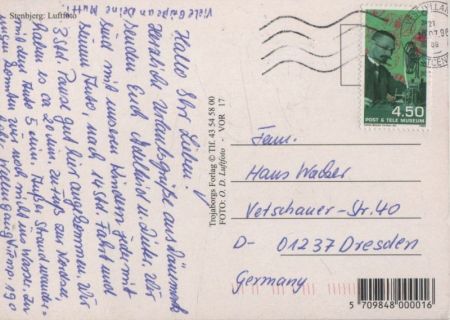 Stenbjerg: Luftfoto
Viele Grüße an Deine Mutti.
Hallo Ihr Lieben!
Herzliche Urlaubsgrüße aus Dänemark
senden Euch
sind mit unseren Kindern, jeder mit
seinem Auto, nach 14 Std. Fahrt und
3 Std. Pause gut hier angekommen. Wir
haben es ca 20 min. zu Fuß zur Nordsee,
mit dem Auto 5 min. Außer Strand
konnten wir noch nicht ins Wasser. Der
Trojaborgs Forlag © Tlf. 43 54 58 00
FOTO: O. D. Luftfoto - VOR 17
4.50
POST & TELE MUSEUM
Fam.
Hans Walter
Vetschauer-Str. 40
D- 01237 Dresden
Germany
5 709848 000016